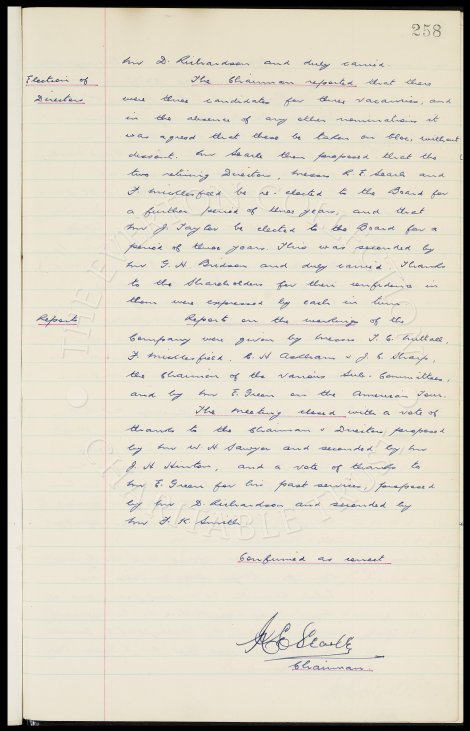 258
Mr D. Richardson and duly carried.
Election of Directors
The Chairman reported that there
were three candidates for three vacancies, and
in the absence of any other nominations it
was agreed that these be taken en bloc, without
dissent. Mr Searle then proposed that the
two retiring Directors, Messrs R. E. Searle and
F. Micklesfield be re-elected to the Board for
a further period of three years, and that
Mr J. Taylor be elected to the Board for a
period of three years. This was seconded by
Mr G. H. Bridson and duly carried. Thanks
to the Shareholders for their confidence in
them were expressed by each in turn.
Reports
Reports on the workings of the
Company were given by Messrs T. C. Nuttall,
F. Micklesfield, C. H. & J. C. Sharp,
the Chairman of the various Sub-Committees,
and by Mr E. Green on the American Tour.
The meeting closed with a vote of
thanks to the Chairman & Directors, proposed
by Mr W. H. Sawyer and seconded by Mr
J. H. Hinton, and a vote of thanks to
Mr E. Green for his past services, proposed
by Mr D. Richardson and seconded by
Mr F. K. Smith.
Confirmed as correct
Chairman
THE EVERTON
CHARITABLE TRUST